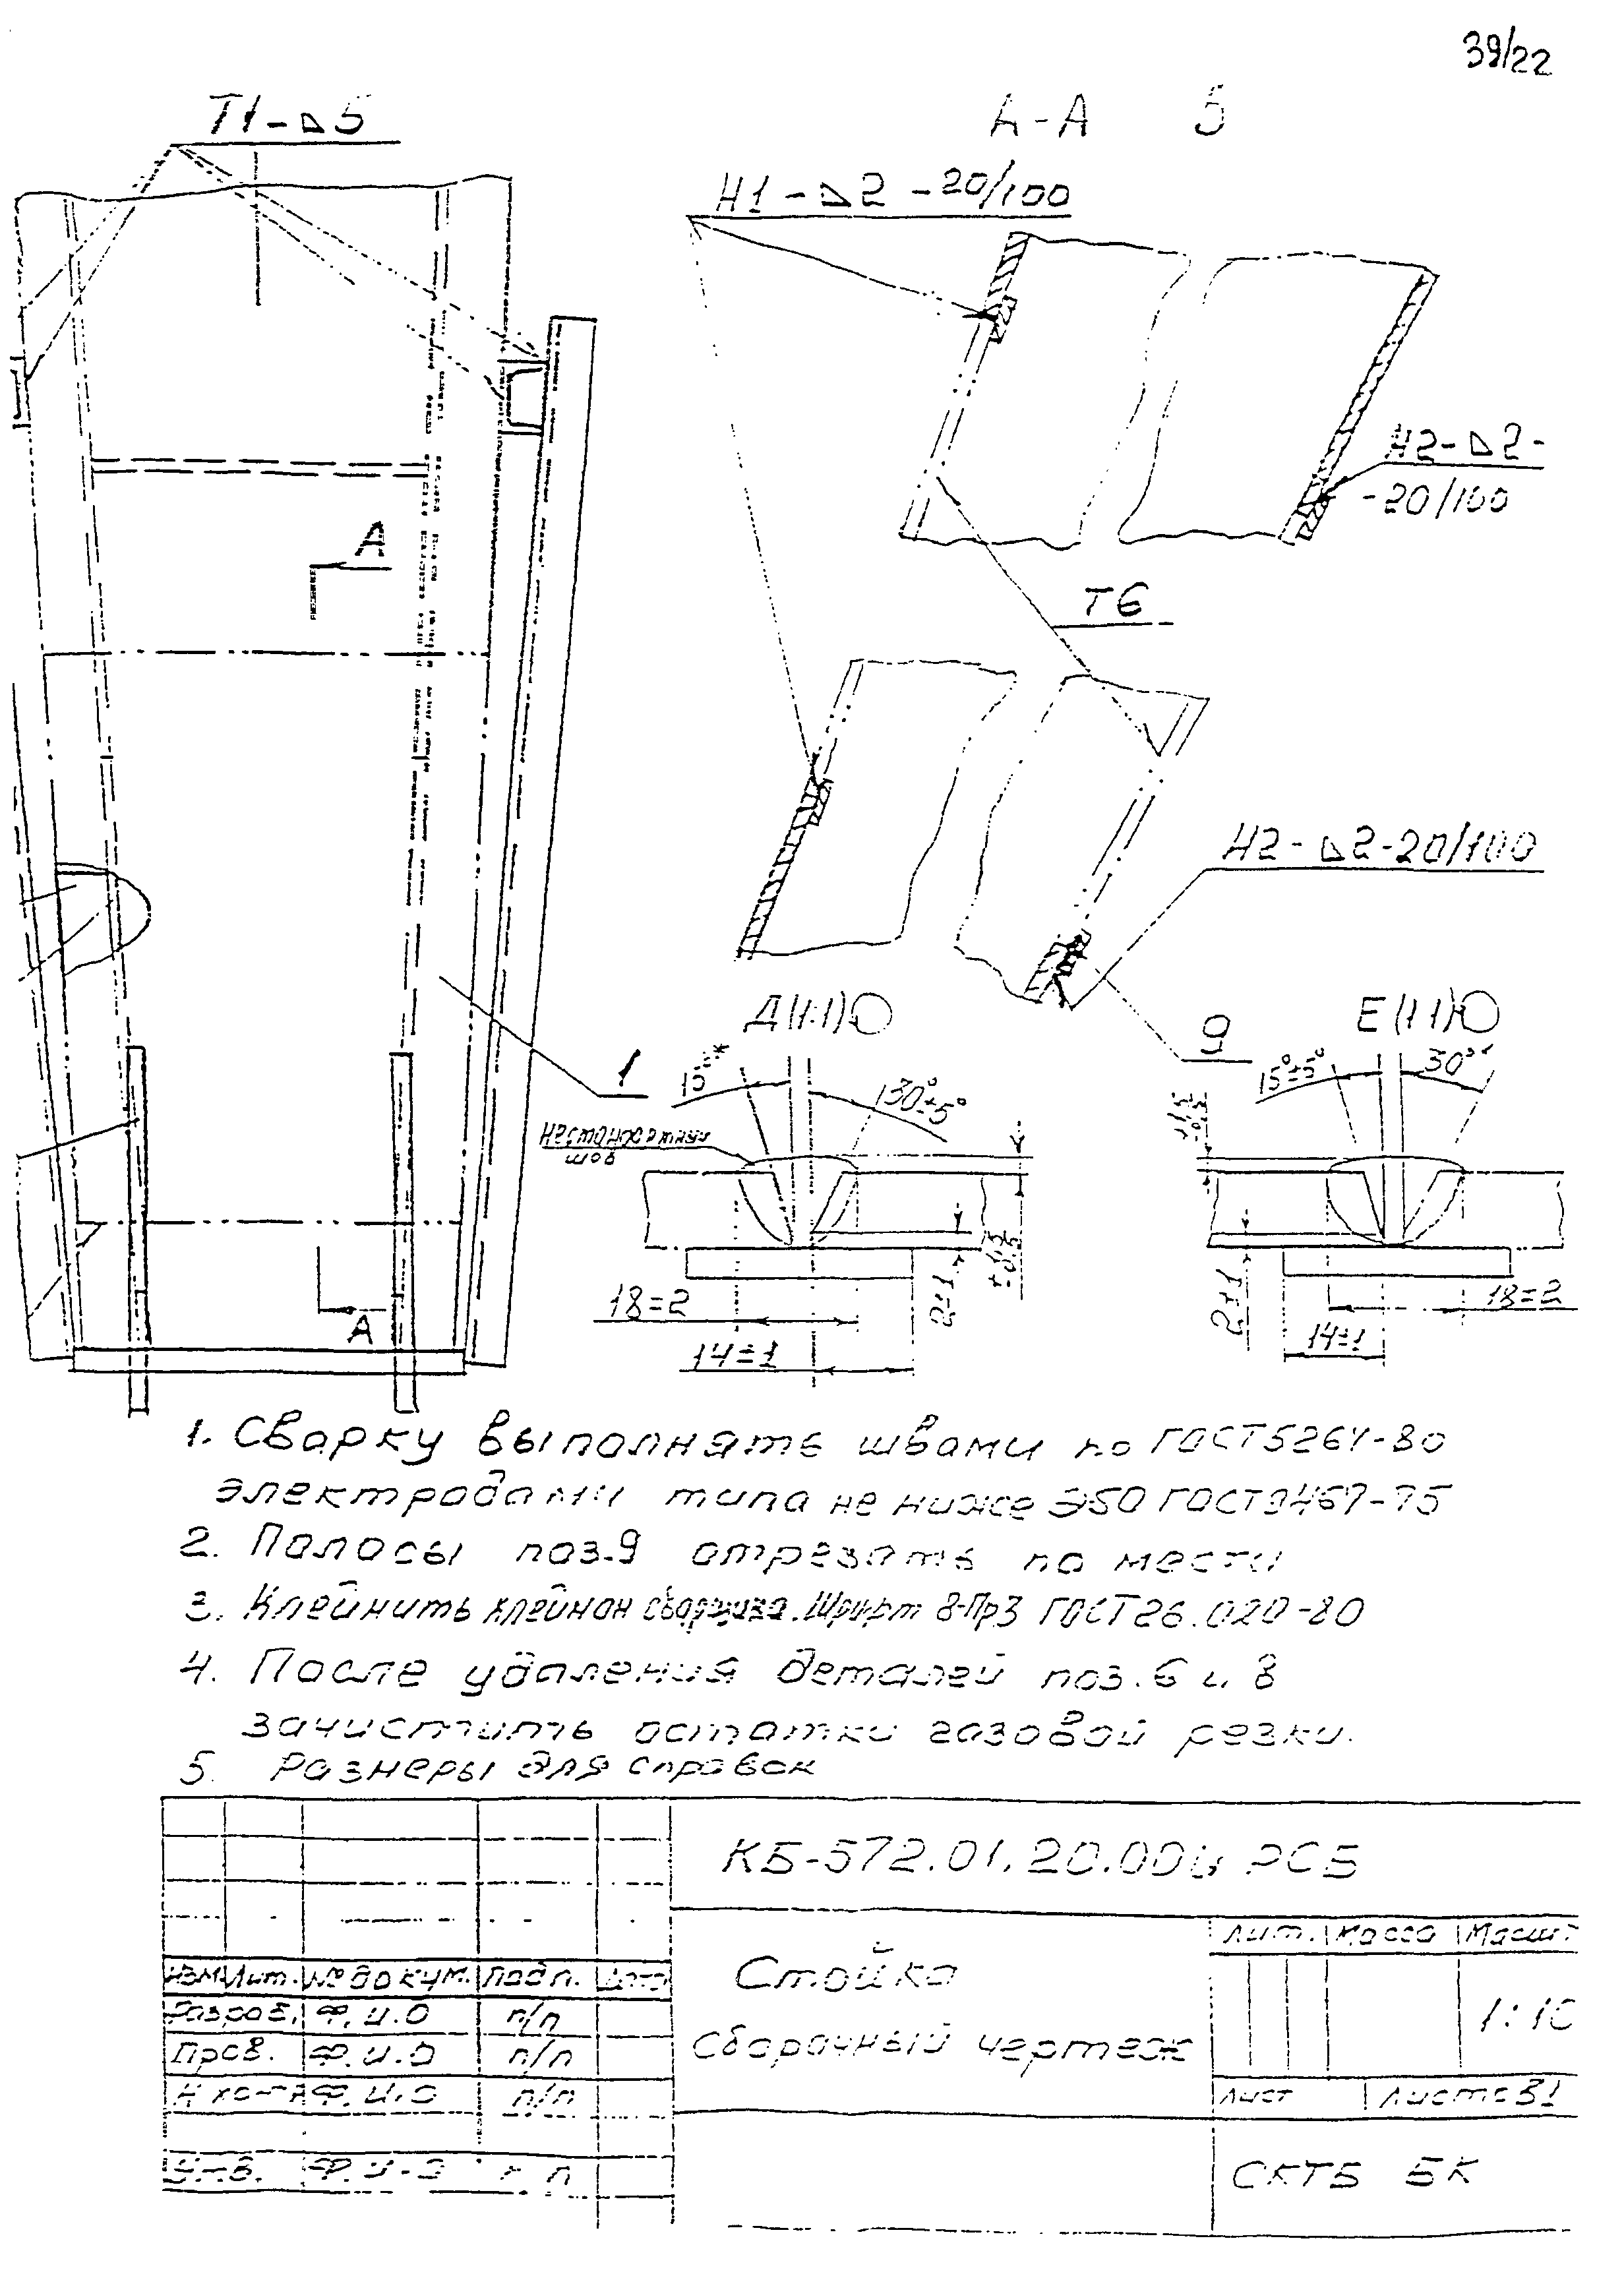 39/22
Т1-⊿5
А-А Б
Н1-⊿2-20/100
Н2-⊿2-
-20/100
А
Т6
Н2-⊿2-20/100
Д(1:1)
Е(1:1)
9
1
15°*
30°±5°
15°±5°
30°*
Нестандартный
шов
18±2
2±1
14±1
2±1
18±2
14±1
А
1. Сварку выполнять швами по ГОСТ 5264-80
электродами типа не ниже Э50 ГОСТ 9467-75
2. Полосы поз.9 отрезать по месту
3. Клеймить клеймом сварщика. Шрифт 8-Пр3 ГОСТ 26.020-80
4. После удаления деталей поз. 6 и 8
зачистить остатки газовой резки.
5. Размеры для справок
КБ-572.01.20.000 РСБ
Лит. Масса Масшт
Изм Лит. № докум. Подп. Дата
Стойка
Разраб. Ф.И.О п/п
1:10
Пров. Ф.И.О п/п
Сборочный чертеж
Н.контр Ф.И.О п/п
Лист Листов 1
Утв. Ф.И.О п/п
СКТБ БК